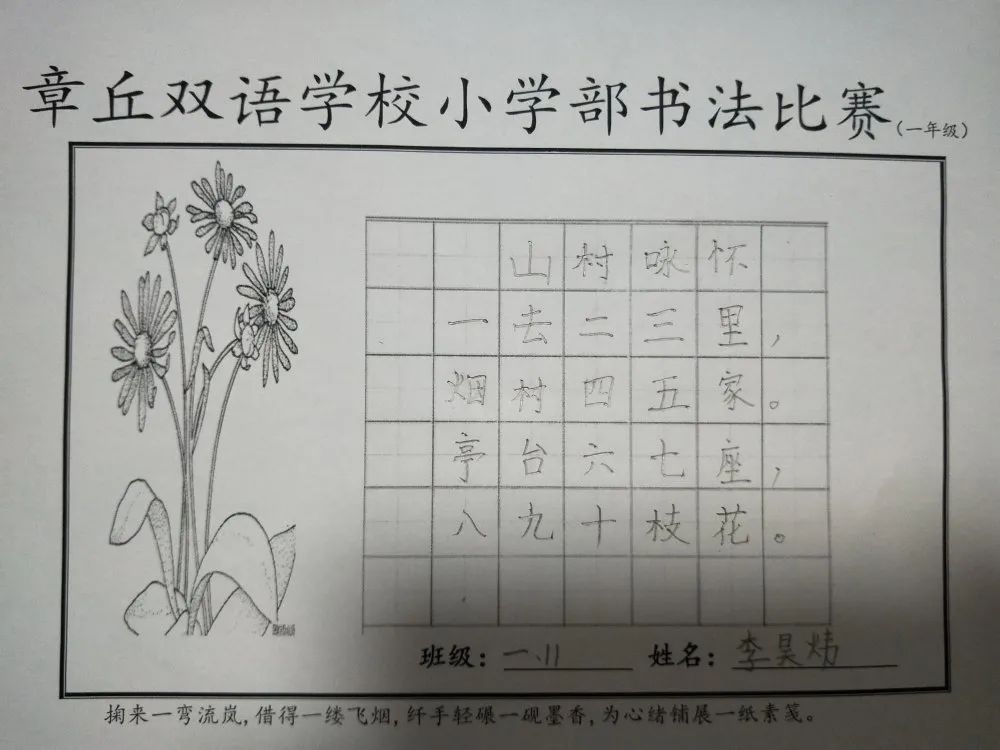 章丘双语学校小学部书法比赛(一年级)
山村咏怀
一去二三里,
烟村四五家。
亭台六七座,
八九十枝花。
班级:一.11 姓名:李昊炜
掬来一弯流岚,借得一缕飞烟,纤手轻碾一砚墨香,为心绪铺展一纸素笺。